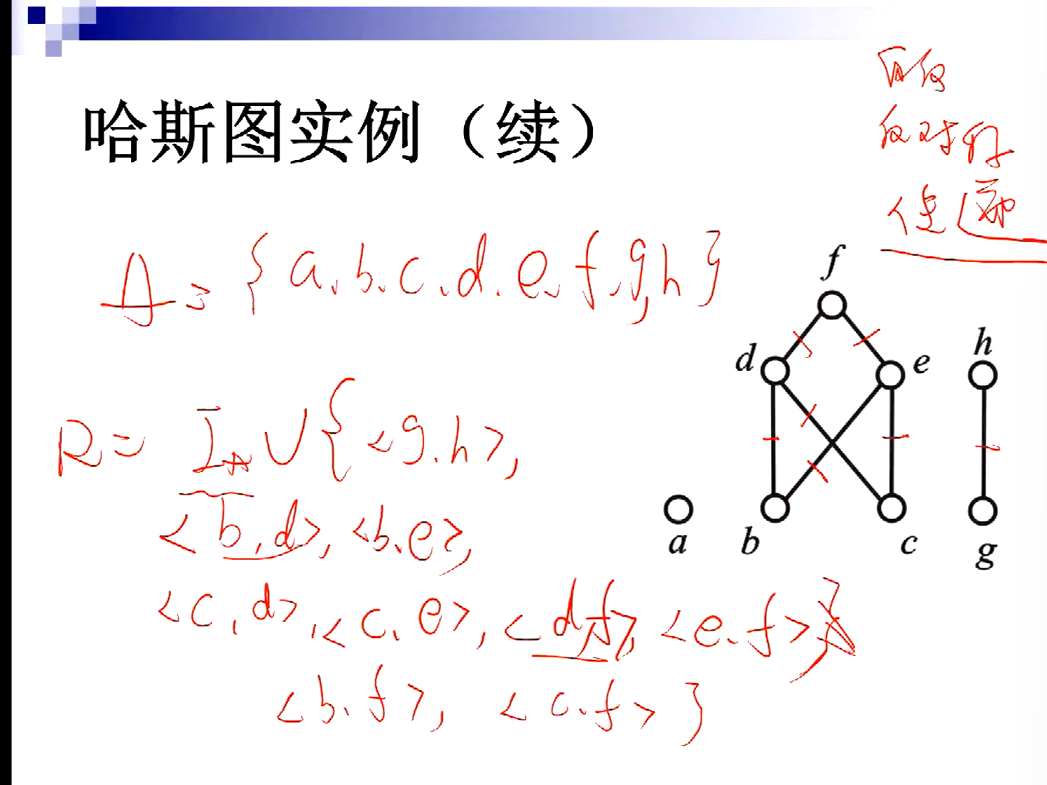 哈斯图实例（续）
自反
反对称
传递
A = {a.b.c.d.e.f.g,h}
R = I_A ∪ {<g.h>,
<b,d>, <b.e>,
<c,d>, <c.e>, <d,f>, <e.f>}
<b.f>, <c.f>}
f
d
e
h
a
b
c
g